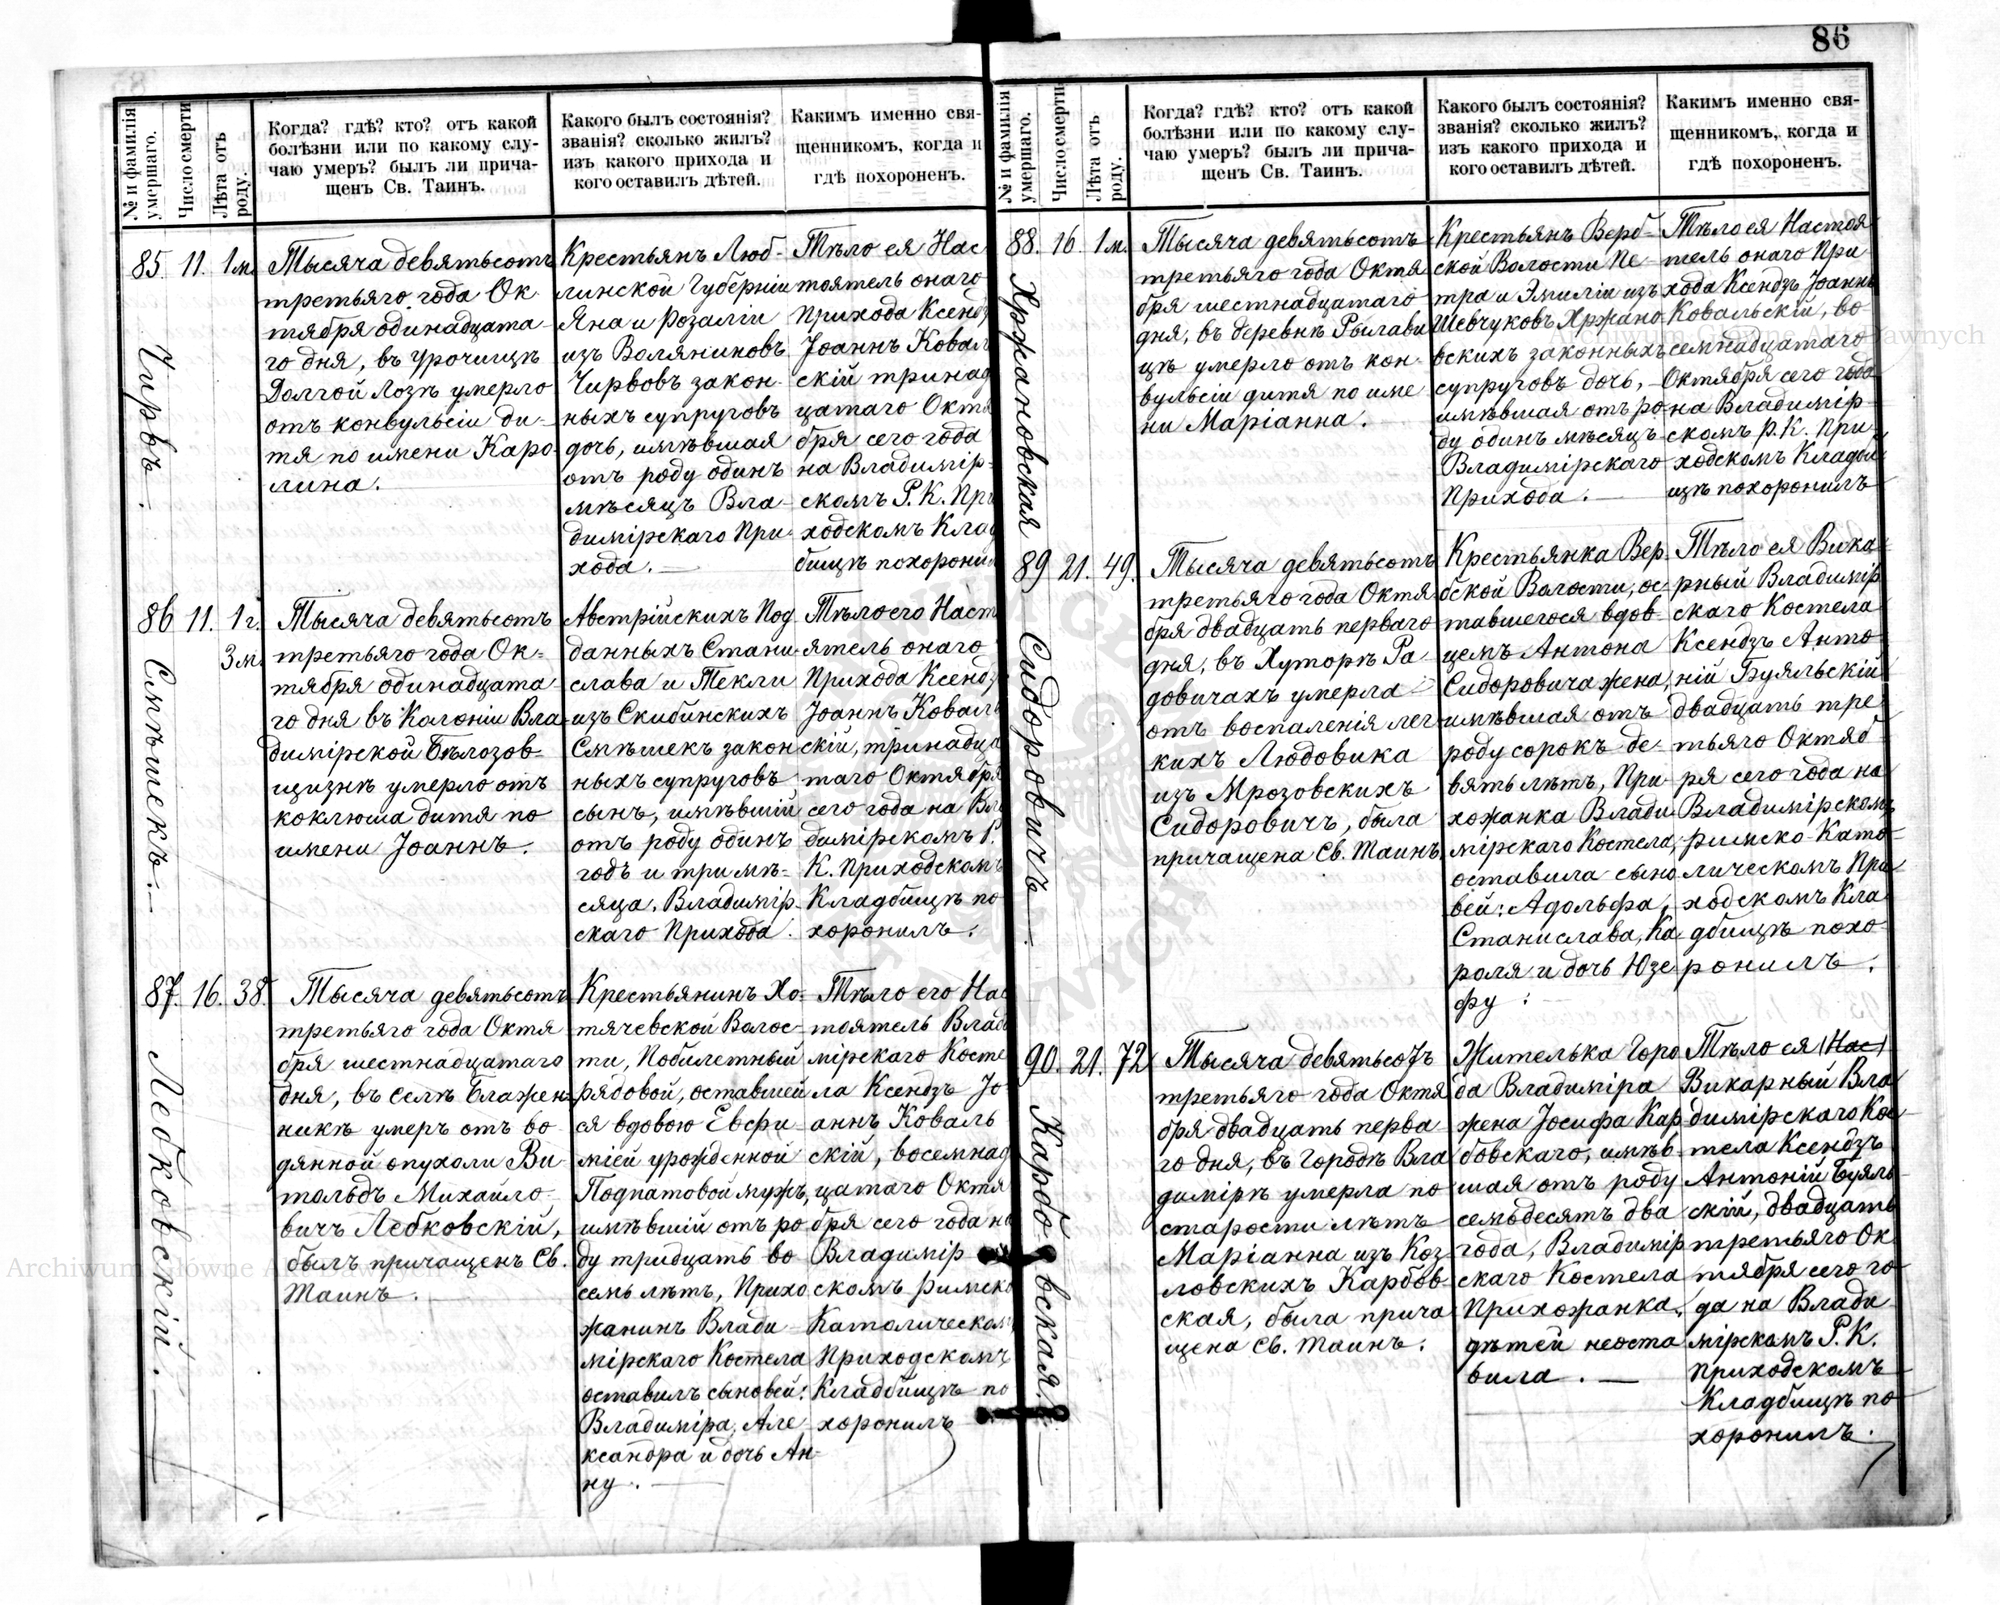 86
№ и фамилія умершаго.
Число смерти
Лѣта отъ роду.
Когда? гдѣ? кто? отъ какой
болѣзни или по какому слу-
чаю умеръ? былъ ли прича-
щенъ Св. Таинъ.
Какого былъ состоянія?
званія? сколько жилъ?
изъ какого прихода и
кого оставилъ дѣтей.
Какимъ именно свя-
щенникомъ, когда и
гдѣ похороненъ.
85
Чирвъ.
11.
1 м.
Тысяча девятьсотъ
третьяго года Ок
тября одинадцата
го дня, въ урочищѣ
Долгой Лозѣ умерло
отъ конвульсіи ди-
тя по имени Каро
лина.
Крестьянъ Люб-
линской Губерніи
Яна и Розаліи
изъ Воляниновъ
Чирвовъ закон-
ныхъ супруговъ
дочь, имѣвшая
отъ роду одинъ
мѣсяцъ Вла-
димірскаго При-
хода.
Тѣло ея Нас
тоятель онаго
Прихода Ксендз
Іоаннъ Ковал
скій тринад
цатаго Октя
бря сего года
на Владимір-
скомъ Р. К. При
ходскомъ Клад
бищѣ похорони
86
Смѣшекъ.
11.
1 г.
3 м.
Тысяча девятьсотъ
третьяго года Ок-
тября одинадцата
го дня въ Колоніи Вла
димірской Бѣлозов-
щизнѣ умерло отъ
коклюша дитя по
имени Іоаннъ.
Австрійскихъ Под
данныхъ Стани
слава и Текли
изъ Скибинскихъ
Смѣшекъ закон
ныхъ супруговъ
сынъ, имѣвшій
отъ роду одинъ
годъ и три мѣ-
сяца. Владимір
скаго Прихода.
Тѣло его Наст
ятель онаго
Прихода Ксендз
Іоаннъ Коваль
скій, тринадца
таго Октября
сего года на Вла
димірскомъ Р.
К. Приходскомъ
Кладбищѣ по
хоронилъ.
87.
Лебковскій.
16.
38.
Тысяча девятьсотъ
третьяго года Октя
бря шестнадцатаго
дня, въ селѣ Блажен
никѣ умеръ отъ во
дянной опухоли Ви
тольдъ Михайло
вичъ Лебковскій,
былъ причащенъ Св.
Таинъ.
Крестьянинъ Хо-
тячевской Волос-
ти, Побилетный
рядовой, оставшей
ся вдовою Евфи
міей урожденной
мужъ,
имѣвшій отъ ро
ду тридцать во
семь лѣтъ, Прихо
жанинъ Влади
мірскаго Костела
оставилъ сыновей:
Владиміра, Але
ксандра и дочь Ан-
ну.
Тѣло его Нас
тоятель Влади
мірскаго Косте
ла Ксендзъ Іо
аннъ Коваль
скій, восемнад
цатаго Октя
бря сего года на
Владимір
скомъ Римско
Католическомъ
Приходскомъ
Кладбищѣ по
хоронилъ
№ и фамилія умершаго.
Число смерти
Лѣта отъ роду.
Когда? гдѣ? кто? отъ какой
болѣзни или по какому слу-
чаю умеръ? былъ ли прича-
щенъ Св. Таинъ.
Какого былъ состоянія?
званія? сколько жилъ?
изъ какого прихода и
кого оставилъ дѣтей.
Какимъ именно свя-
щенникомъ, когда и
гдѣ похороненъ.
88.
Хржановская
16
1 м.
Тысяча девятьсотъ
третьяго года Октя
бря шестнадцатаго
дня, въ деревнѣ Рылави
цѣ умерло отъ кон-
вульсіи дитя по име
ни Маріанна.
Крестьянъ Верб-
ской Волости Пе-
тра и Эмиліи изъ
Шевчуковъ Хржано
вскихъ законныхъ
супруговъ дочь,
имѣвшая отъ ро-
ду одинъ мѣсяцъ
Владимірскаго
Прихода.
Тѣло ея Настоя
тель онаго При
хода Ксендзъ Іоаннъ
Ковальскій, во-
семнадцатаго
Октября сего года
на Владимір-
скомъ Р. К. При-
ходскомъ Кладби
щѣ похоронилъ
89
Сидоровичъ
21.
49.
Тысяча девятьсотъ
третьяго года Октя
бря двадцать перваго
дня, въ Хуторѣ Ра
довичахъ умерла
отъ воспаленія лег
кихъ Людовика
изъ Мрозовскихъ
Сидоровичъ, была
причащена Св. Таинъ.
Крестьянка Вер-
бской Волости, ос-
тавшегося вдов-
цемъ Антона
Сидоровича жена,
имѣвшая отъ
роду сорокъ де-
вять лѣтъ, При
хожанка Влади
мірскаго Костела,
оставила сыно
вей: Адольфа,
Станислава, Ка
роля и дочь Юзе
фу.
Тѣло ея Вика-
рный Владимір
скаго Костела
Ксендзъ Анто
ній Буяльскій
двадцать тре
тьяго Октяб-
ря сего года на
Владимірскомъ
Римско-Като-
лическомъ При
ходскомъ Кла
дбищѣ похо-
ронилъ.
90.
Карбовская.
21.
72
Тысяча девятьсотъ
третьяго года Октя
бря двадцать перва
го дня, въ Городѣ Вла
димірѣ умерла по
старости лѣтъ
Маріанна изъ Коз
ловскихъ Карбов-
ская, была прича
щена Св. Таинъ.
Жителька Горо
да Владиміра
жена Іосифа Кар
бовскаго, имѣв-
шая отъ роду
семьдесятъ два
года, Владимір
скаго Костела
Прихожанка,
дѣтей неоста
вила.
Тѣло ея (Нас)
Викарный Вла
димірскаго Кос
тела Ксендзъ
Антоній Буяль
скій, двадцать
третьяго Ок
тября сего го
да на Влади-
мірскомъ Р. К.
Приходскомъ
Кладбищѣ по
хоронилъ.
Archiwum Główne Akt Dawnych